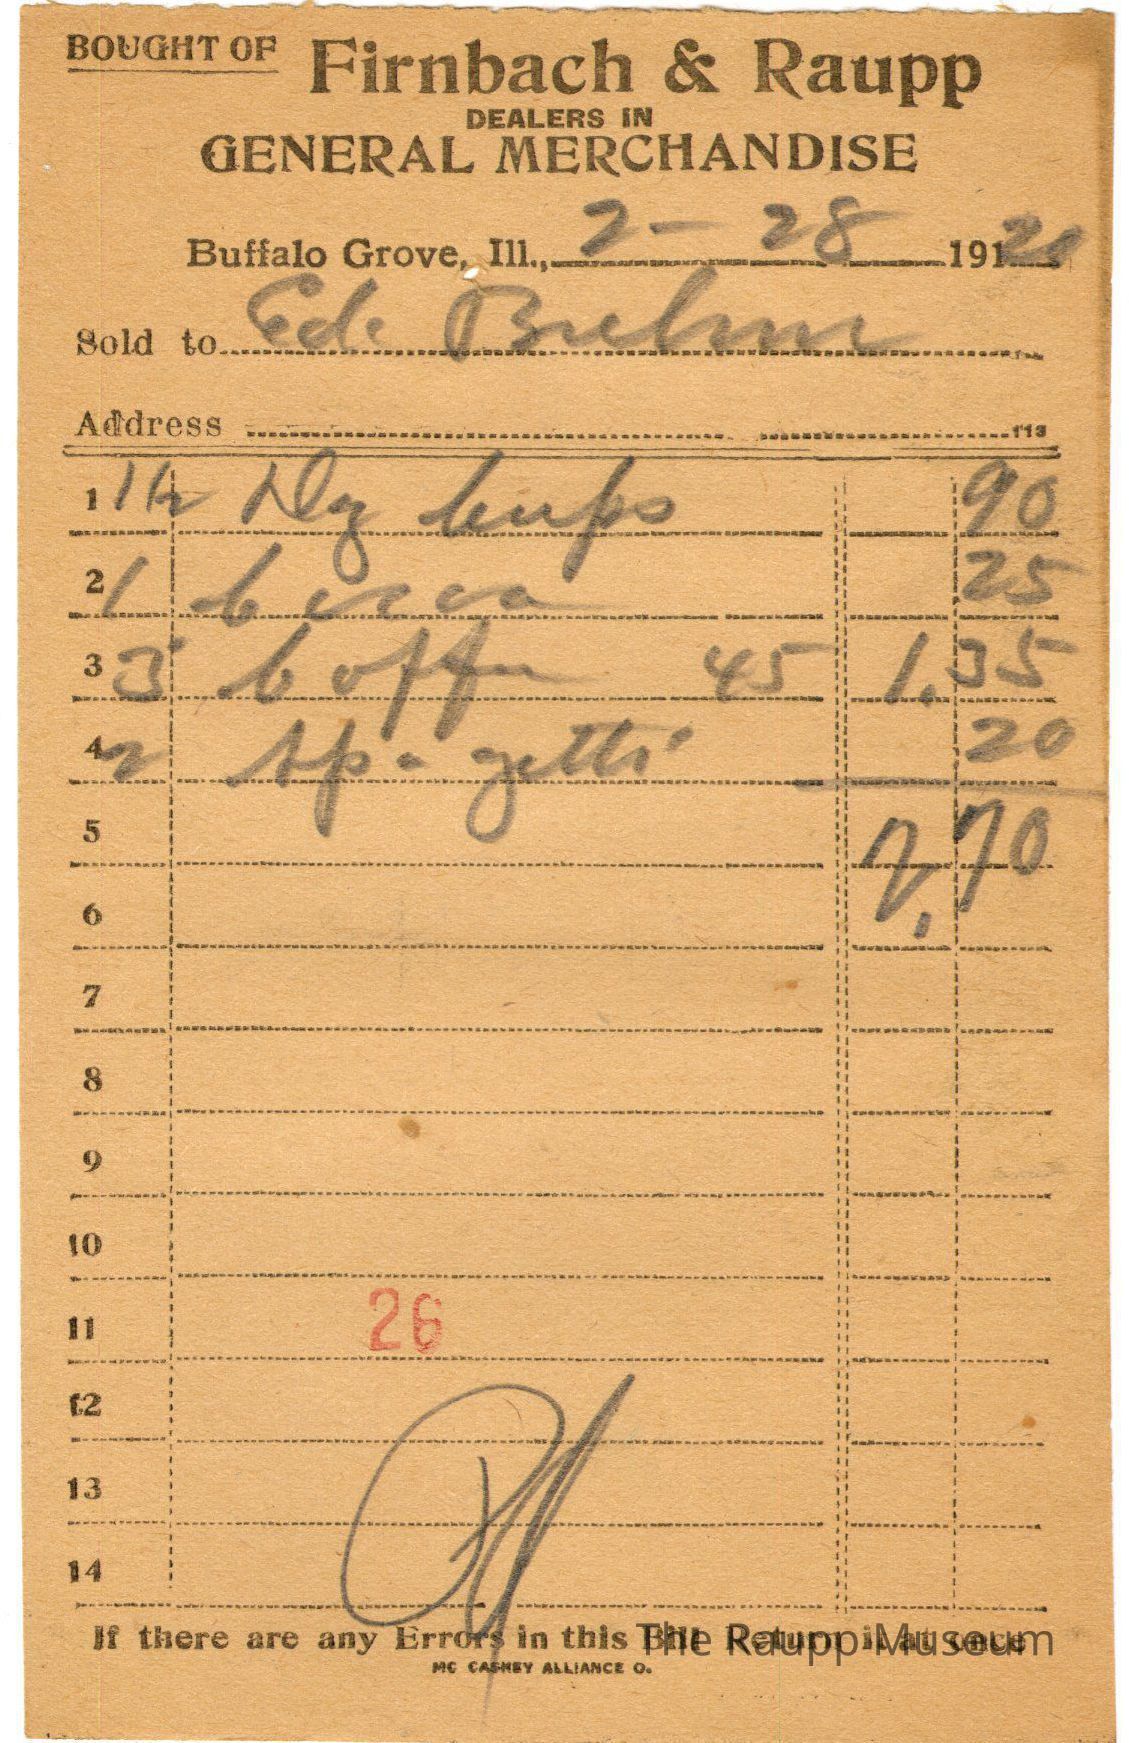 BOUGHT OF Firnbach & Raupp
DEALERS IN
GENERAL MERCHANDISE
Buffalo Grove, Ill., 2-28 191 20
Sold to Ed. Buhm
Address 113
1 1½ Dz Cups 90
2 1 25
3 3 Coffe 45 1.35
4 2 Spagetti 20
5 2.70
6
7
8
9
10
11 26
12
13
14
If there are any Errors in this Bill Return it at once
The Raupp Museum
MC CASKEY ALLIANCE O.